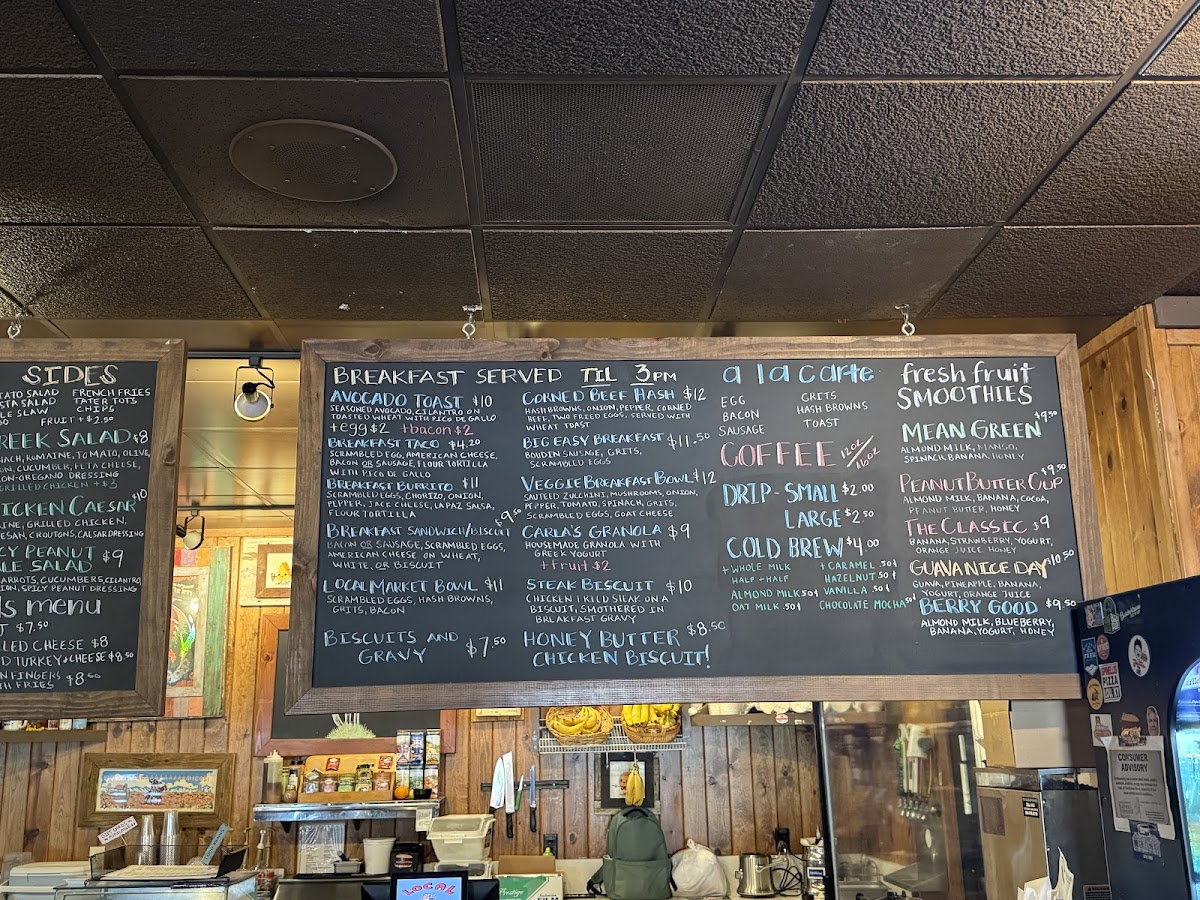 SIDES
TATO SALAD FRENCH FRIES
STA SALAD TATER TOTS
LE SLAW CHIPS
FRUIT + $1.50
REEK SALAD $8
NACH, ROMAINE, TOMATO, OLIVE,
ON, CUCUMBER, FETA CHEESE,
ON-OREGANO DRESSING
GRILLED CHICKEN +$3
ICKEN CAESAR $10
INE, GRILLED CHICKEN,
ESAN, CROUTONS, CAESAR DRESSING
CY PEANUT $9
LE SALAD
ARROTS, CUCUMBERS, CILANTRO,
ION, SPICY PEANUT DRESSING
ds menu
J $7.50
LLED CHEESE $8
D TURKEY + CHEESE $8.50
EN FINGERS $8.00
TH FRIES
BREAKFAST SERVED TIL 3PM
AVOCADO TOAST $10
SEASONED AVOCADO, CILANTRO ON
TOASTED WHEAT WITH PICO DE GALLO
+egg $2 +bacon $2
BREAKFAST TACO $4.20
SCRAMBLED EGG, AMERICAN CHEESE,
BACON OR SAUSAGE, FLOUR TORTILLA
WITH PICO DE GALLO
BREAKFAST BURRITO $11
SCRAMBLED EGGS, CHORIZO, ONION,
PEPPER, JACK CHEESE, LA PAZ SALSA,
FLOUR TORTILLA
BREAKFAST SANDWICH/BISCUIT $9.50
BACON OR SAUSAGE, SCRAMBLED EGGS,
AMERICAN CHEESE ON WHEAT,
WHITE, OR BISCUIT
LOCAL MARKET BOWL $11
SCRAMBLED EGGS, HASH BROWNS,
GRITS, BACON
BISCUITS AND $7.50
GRAVY
CORNED BEEF HASH $12
HASHBROWNS, ONION, PEPPER, CORNED
BEEF, TWO FRIED EGGS, SERVED WITH
WHEAT TOAST
BIG EASY BREAKFAST $11.50
BOUDIN SAUSAGE, GRITS,
SCRAMBLED EGGS
VEGGIE BREAKFAST BOWL $12
SAUTEED ZUCCHINI, MUSHROOMS, ONION,
PEPPER, TOMATO, SPINACH, GRITS,
SCRAMBLED EGGS, GOAT CHEESE
CARLA'S GRANOLA $9
HOUSEMADE GRANOLA WITH
GREEK YOGURT
+fruit $2
STEAK BISCUIT $10
CHICKEN FRIED STEAK ON A
BISCUIT, SMOTHERED IN
BREAKFAST GRAVY
HONEY BUTTER $8.50
CHICKEN BISCUIT!
a la carte
EGG GRITS
BACON HASH BROWNS
SAUSAGE TOAST
COFFEE 12oz/16oz
DRIP - SMALL $2.00
LARGE $2.50
COLD BREW $4.00
+ WHOLE MILK + CARAMEL .50¢
HALF + HALF HAZELNUT .50¢
ALMOND MILK .50¢ VANILLA .50¢
OAT MILK .50¢ CHOCOLATE MOCHA .50¢
fresh fruit
SMOOTHIES
MEAN GREEN $9.50
ALMOND MILK, MANGO,
SPINACH, BANANA, HONEY
PEANUT BUTTER CUP $9.50
ALMOND MILK, BANANA, COCOA,
PEANUT BUTTER, HONEY
THE CLASSIC $9
BANANA, STRAWBERRY, YOGURT,
ORANGE JUICE, HONEY
GUAVA NICE DAY $10.50
GUAVA, PINEAPPLE, BANANA,
YOGURT, ORANGE JUICE
BERRY GOOD $9.50
ALMOND MILK, BLUEBERRY,
BANANA, YOGURT, HONEY
CONSUMER
ADVISORY
LOCAL